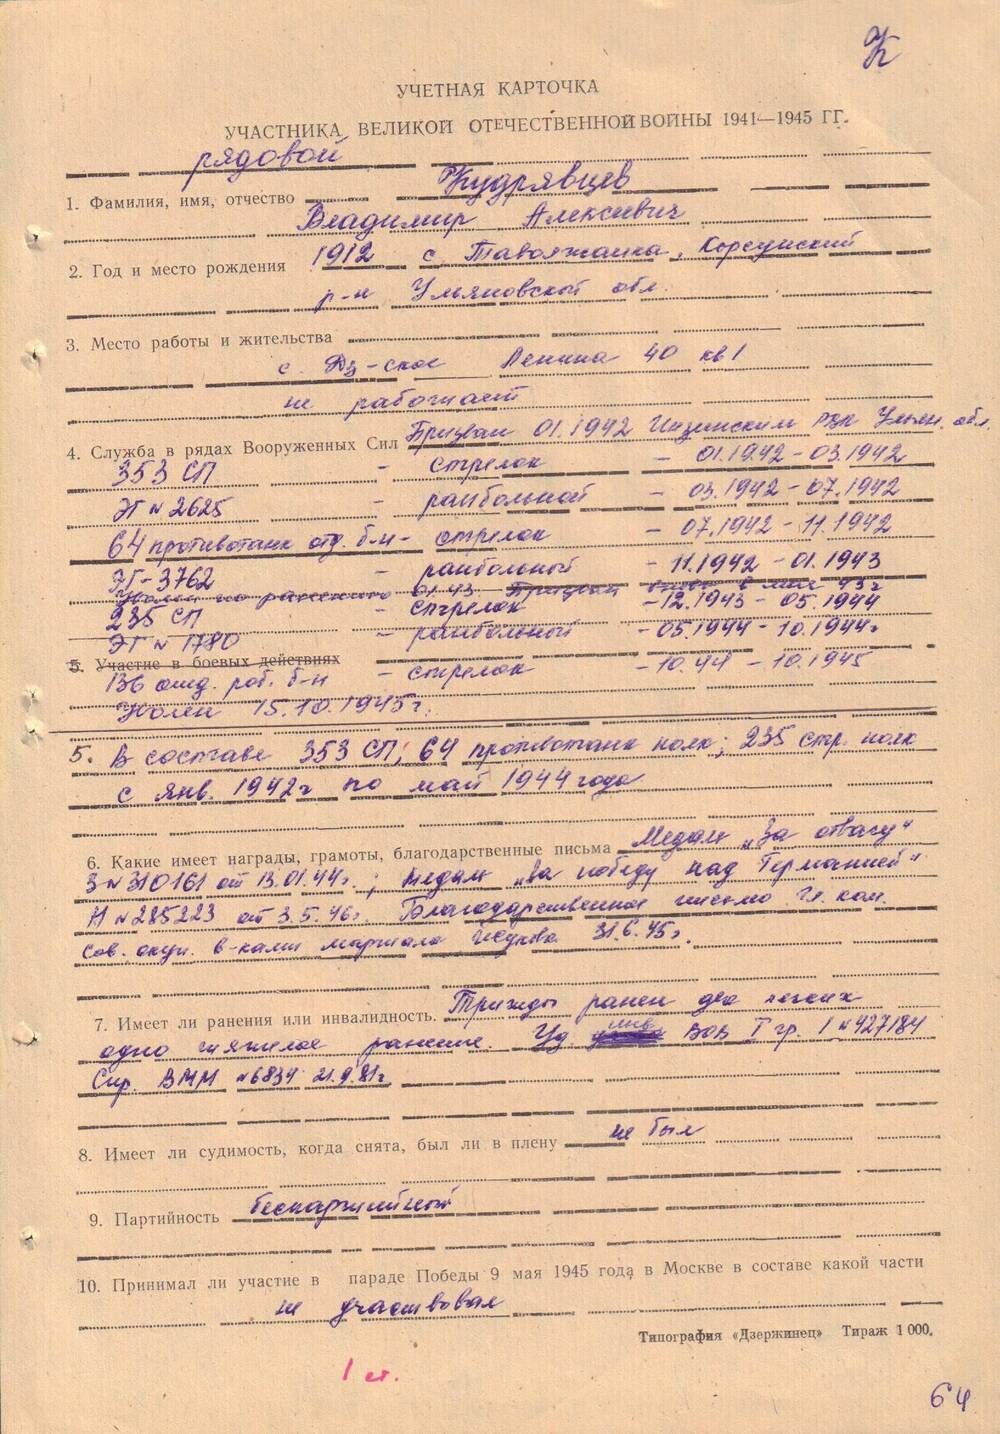 К
УЧЕТНАЯ КАРТОЧКА
УЧАСТНИКА ВЕЛИКОЙ ОТЕЧЕСТВЕННОЙ ВОЙНЫ 1941—1945 ГГ.
рядовой
1. Фамилия, имя, отчество Кудрявцев
Владимир Алексеевич
2. Год и место рождения 1912 с. Таволжанка, Корсунский
р-н Ульяновской обл.
3. Место работы и жительства
с. Дз-ское Ленина 40 кв 1
не работает
4. Служба в рядах Вооруженных Сил Призван 01.1942 РВК Ульян. обл.
353 СП - стрелок - 01.1942 - 03.1942
ЭГ № 2625 - ранбольной - 03.1942 - 07.1942
64 противотанк отд. б-н - стрелок - 07.1942 - 11.1942
ЭГ-3762 - ранбольной - 11.1942 - 01.1943
Уволен по ранению 01.43. Призван вновь в мая 43г
235 СП - стрелок - 12.1943 - 05.1944
ЭГ № 1780 - ранбольной - 05.1944 - 10.1944г
5. Участие в боевых действиях
136 отд. раб. б-н - стрелок - 10.44 - 10.1945
Уволен 15.10.1945г.
5. В составе 353 СП; 64 противотанк полк; 235 стр. полк
с янв. 1942г по май 1944 года
6. Какие имеет награды, грамоты, благодарственные письма Медаль „За отвагу"
З № 310161 от 13.01.44г.; медаль „За победу над Германией"
Н № 285223 от 3.5.46г. Благодарственное письмо Гл. ком.
Сов. окуп. в-ками маршала Жукова 31.6.45г.
7. Имеет ли ранения или инвалидность. Трижды ранен два легких
одно тяжелое ранение. Уд инв ВОВ I гр. I № 427184
Спр. ВММ № 6834 21.9.81г
8. Имеет ли судимость, когда снята, был ли в плену не был
9. Партийность беспартийный
10. Принимал ли участие в параде Победы 9 мая 1945 года в Москве в составе какой части
не участвовал
Типография «Дзержинец» Тираж 1 000.
1 ст.
64